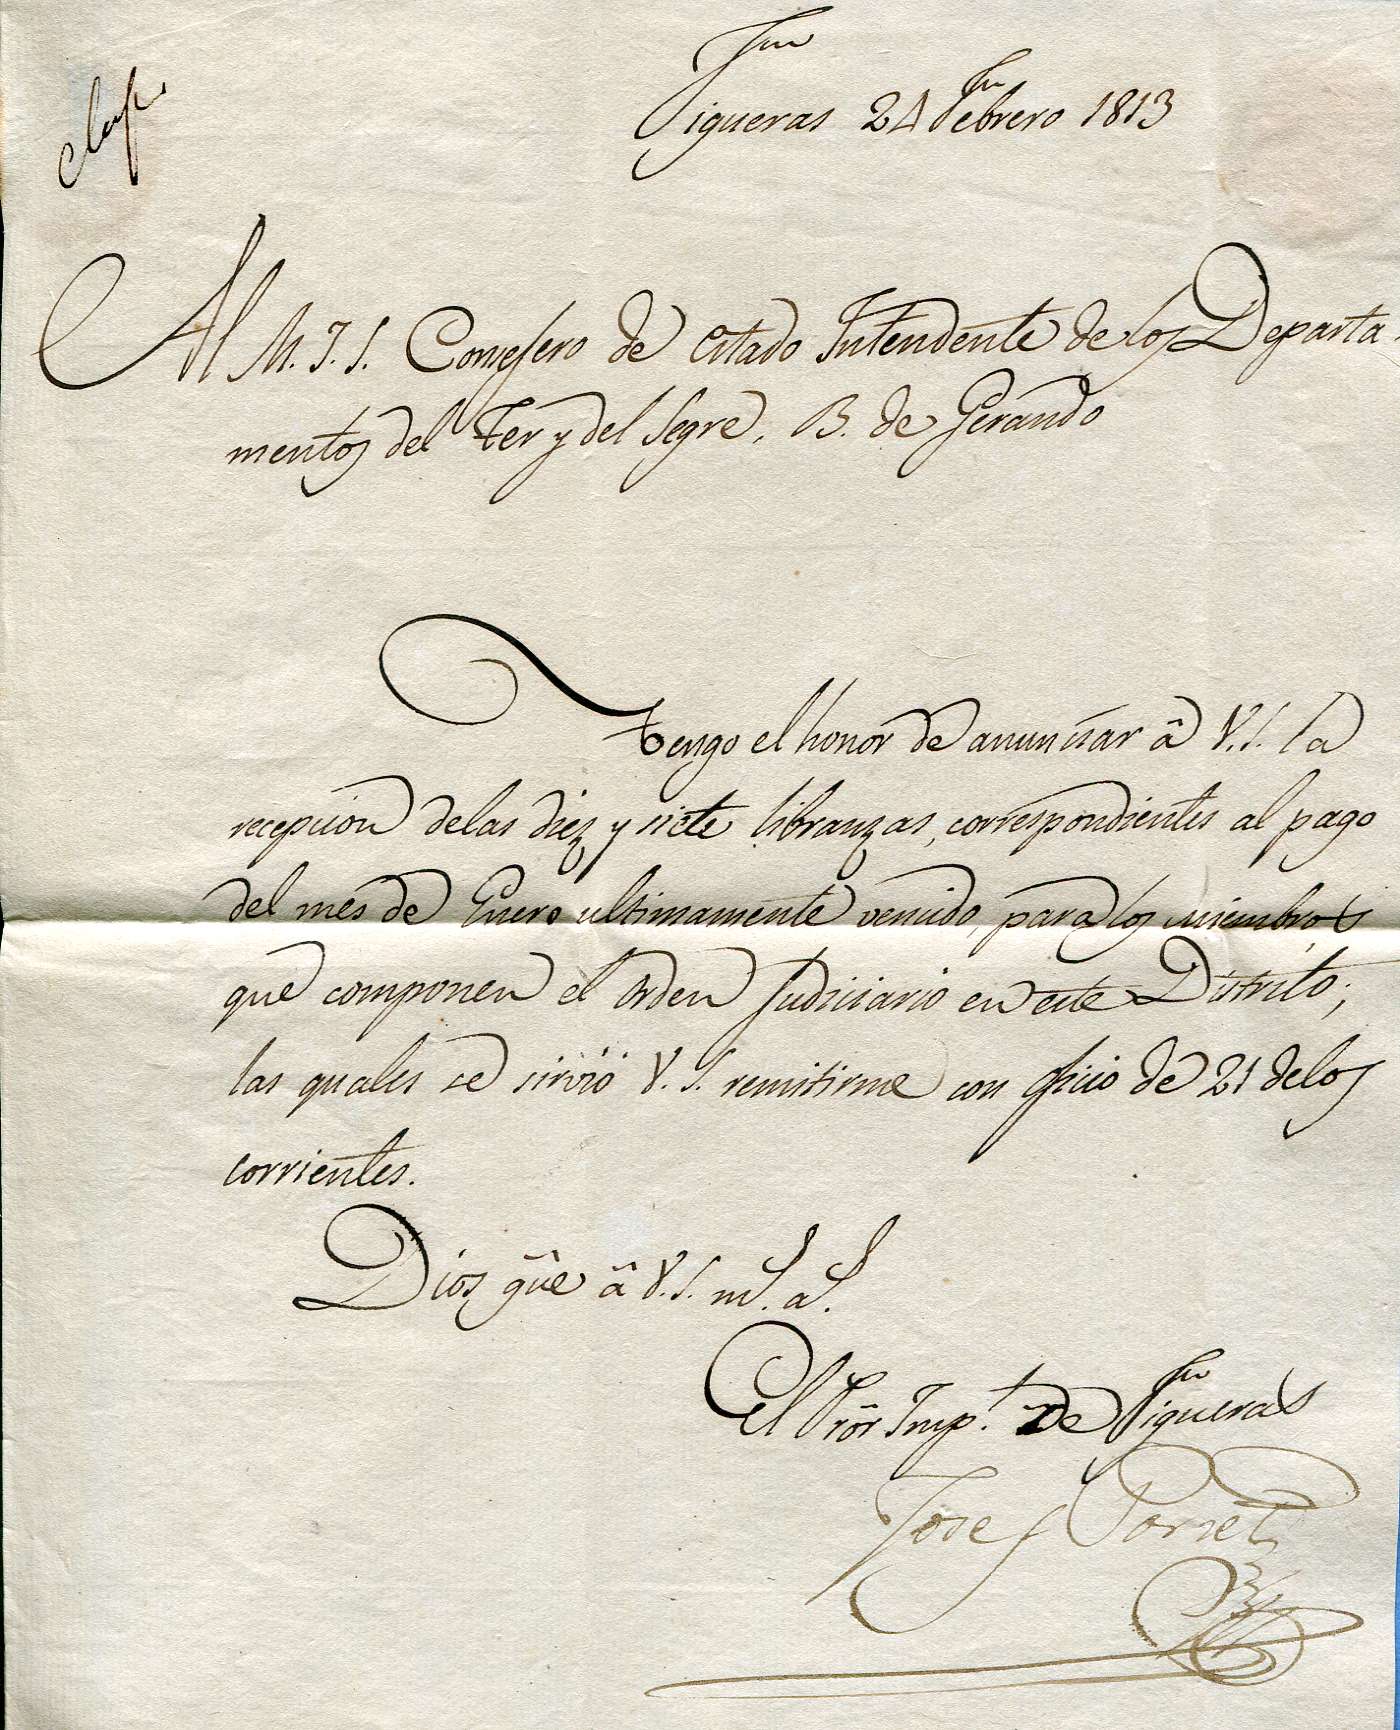 Figueras 24 Febrero 1813
Al M. I. S. Consejero de Estado Intendente de los Departa-
mentos del Ter y del Segre, B. de Gerando
Tengo el honor de anunciar â V. S. la
recepcion delas diez y siete libranzas, correspondientes al pago
del mes de Enero ultimamente venido, para los miembros
que componen el orden Judiciario en este Distrito;
las quales se sirvió V. S. remitirme con oficio de 21 delos
corrientes.
Dios gûe â V. S. ms. as.
El Prõr Imp.l de Figueras
Josef